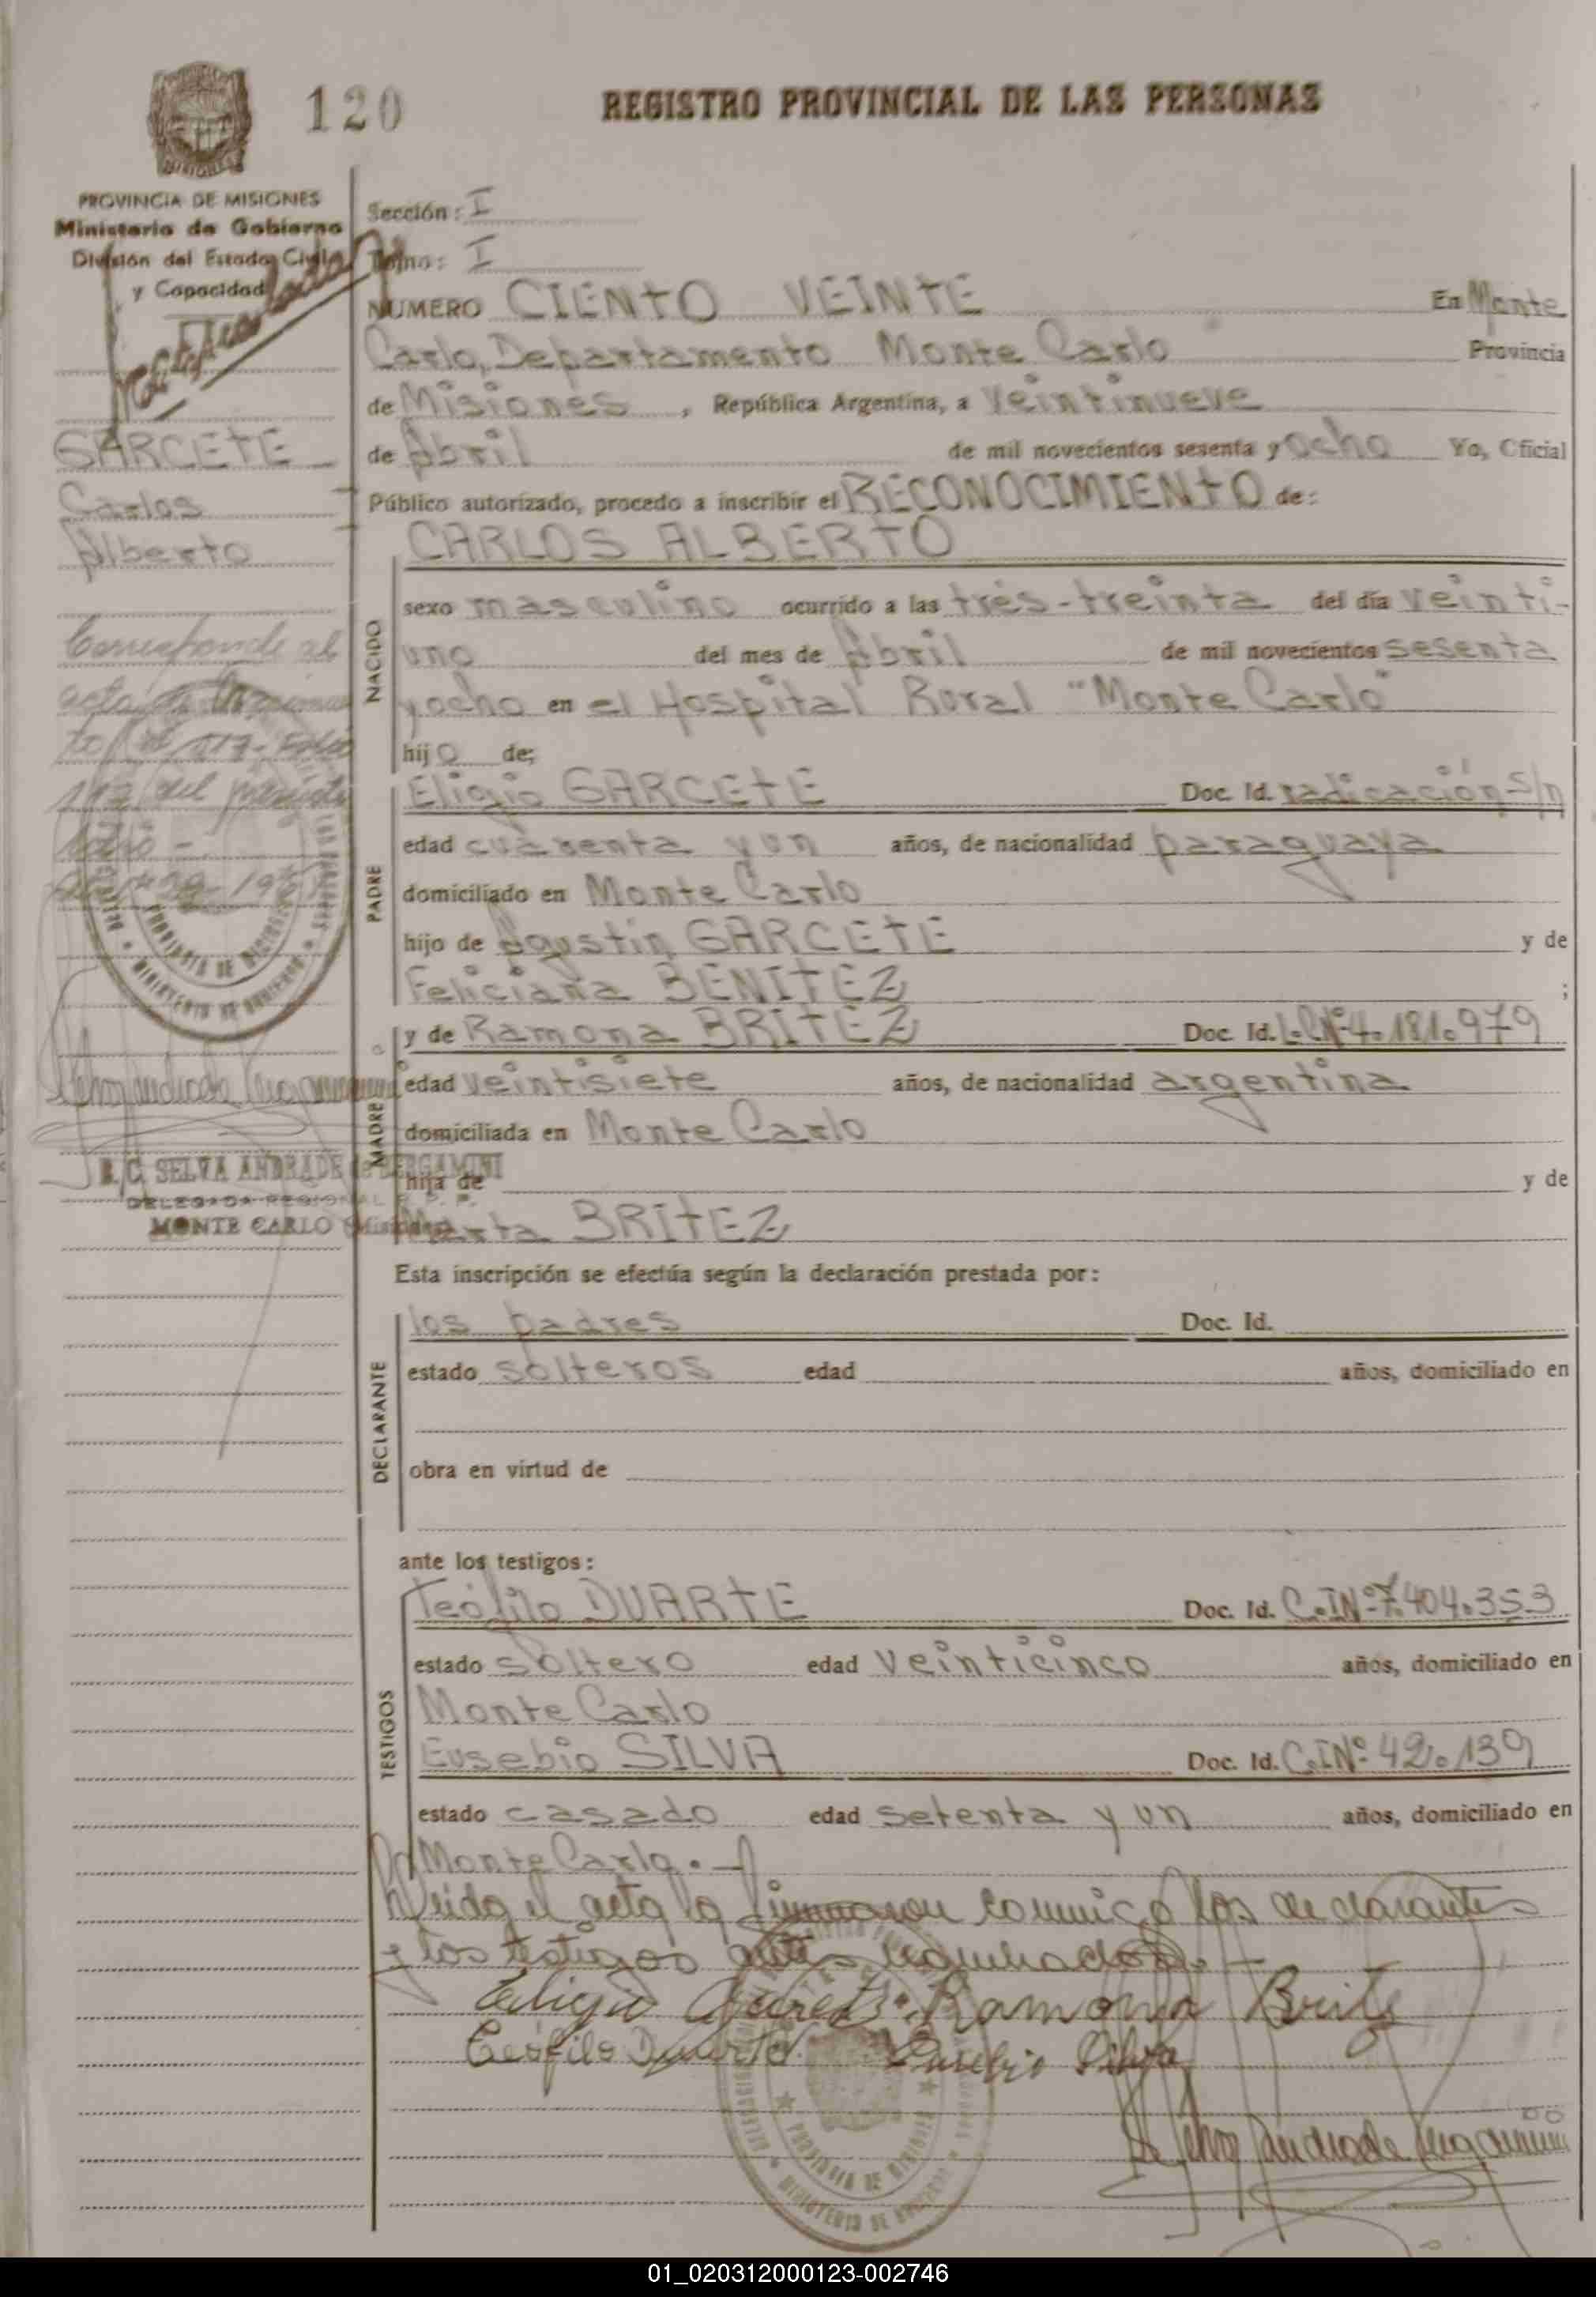 120
REGISTRO PROVINCIAL DE LAS PERSONAS
MISIONES
PROVINCIA DE MISIONES
Ministerio de Gobierno
División del Estado Civil
y Capacidad
GARCETE
Carlos
Alberto
Corresponde al
acta de Nacimien
to
del presente
R. C. SELVA ANDRADE de BERGAMINI
DELEGADA REGIONAL R. P. P.
MONTE CARLO (Misiones)
Sección: I
Tomo: I
NUMERO CIENTO VEINTE En Monte
Carlo, Departamento Monte Carlo Provincia
de Misiones, República Argentina, a Veintinueve
de Abril de mil novecientos sesenta y Ocho Yo, Oficial
Público autorizado, procedo a inscribir el RECONOCIMIENTO de:
CARLOS ALBERTO
NACIDO
sexo masculino ocurrido a las tres-treinta del día veinti-
uno del mes de Abril de mil novecientos sesenta
y ocho en el Hospital Rural "Monte Carlo"
hijo de;
PADRE
Eligio GARCETE Doc. Id. radicación s/n
edad cuarenta y un años, de nacionalidad paraguaya
domiciliado en Monte Carlo
hijo de Agustín GARCETE y de
Feliciana BENITEZ ;
MADRE
y de Ramona BRITEZ Doc. Id. L.C.Nº 4.181.979
edad veintisiete años, de nacionalidad argentina
domiciliada en Monte Carlo
hija de y de
Marta BRITEZ
Esta inscripción se efectúa según la declaración prestada por:
DECLARANTE
los padres Doc. Id.
estado solteros edad años, domiciliado en
obra en virtud de
ante los testigos:
TESTIGOS
Teófilo DUARTE Doc. Id. C.I.Nº 7.404.353
estado soltero edad veinticinco años, domiciliado en
Monte Carlo
Eusebio SILVA Doc. Id. C.I.Nº 42.139
estado casado edad setenta y un años, domiciliado en
Monte Carlo.-
Leida el acta la firmaron conmigo los declarantes
y los testigos antes
Eligio Garcete. Ramona Brite
Teófilo Duarte. Eusebio Silva
PROVINCIA DE MISIONES
MINISTERIO DE GOBIERNO
01_020312000123-002746